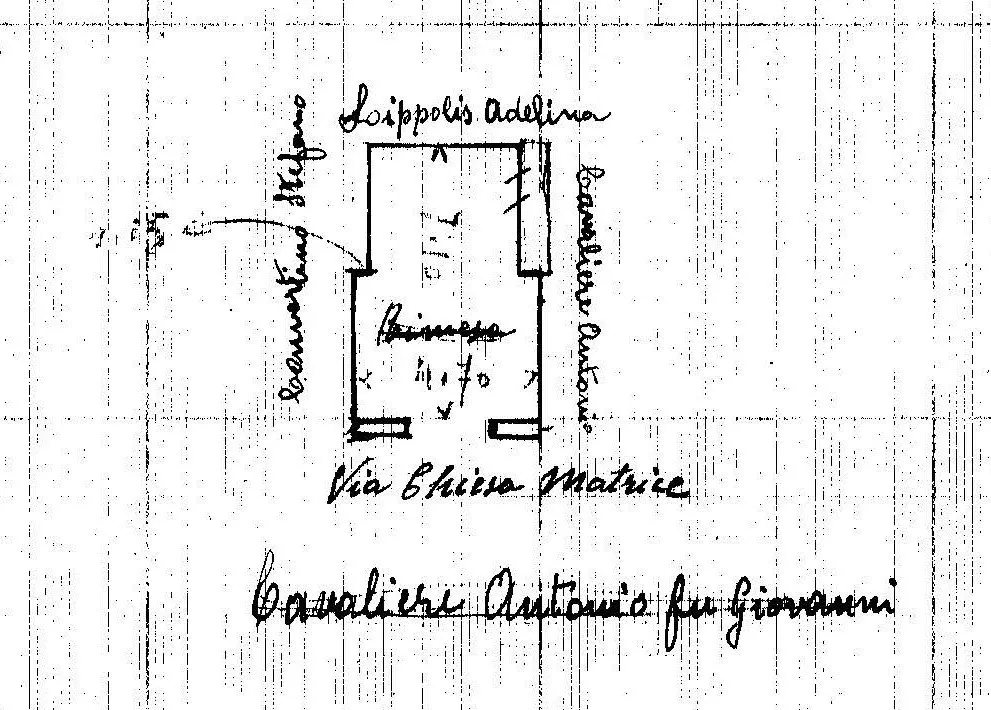 Scippolis Adelina
Stefano
Cavaliere Antonio
7.10
Rimessa
4.70
Via Chiesa Matrice
Cavaliere Antonio fu Giovanni